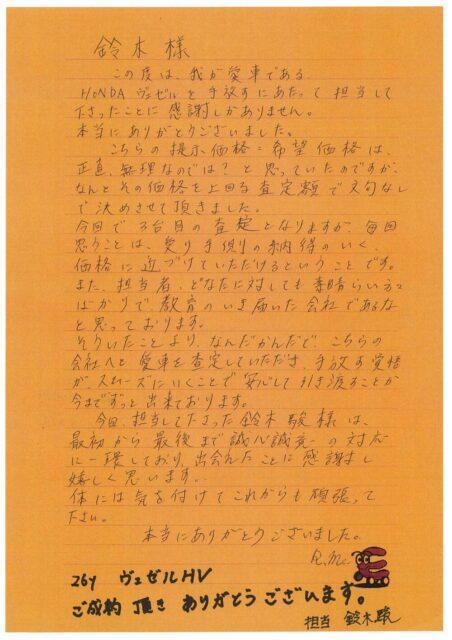 鈴木様
この度は、我が愛車である
HONDA ヴェゼルを手放すにあたって担当して
下さったことに感謝しかありません。
本当にありがとうございました。
こちらの提示価格=希望価格は、
正直、無理なのでは?と思っていたのですが、
なんとその価格を上回る査定額で文句なし
で決めさせて頂きました。
今回で3台目の査定となりますが、毎回
思うことは、売り手側の納得のいく、
価格に近づけていただけるということです。
また、担当者、どなたに対しても素晴らしい方々
ばかりで、教育のいき届いた会社であるな
と思っております。
そういたことより、なんだかんだで、こちらの
会社へと愛車を査定していただき、手放す覚悟
が、スムーズにいくことで安心して引き渡すことが
今までずっと出来ております。
今回、担当して下さった鈴木駿様は、
最初から最後まで誠心誠意の対応
に一環しており、出会えたことに感謝まし
嬉しく思います。
体には気を付けてこれからも頑張って
下さい。
本当にありがとうございました。
26y ヴェゼルHV
ご成約頂きありがとうございます。
担当 鈴木駿